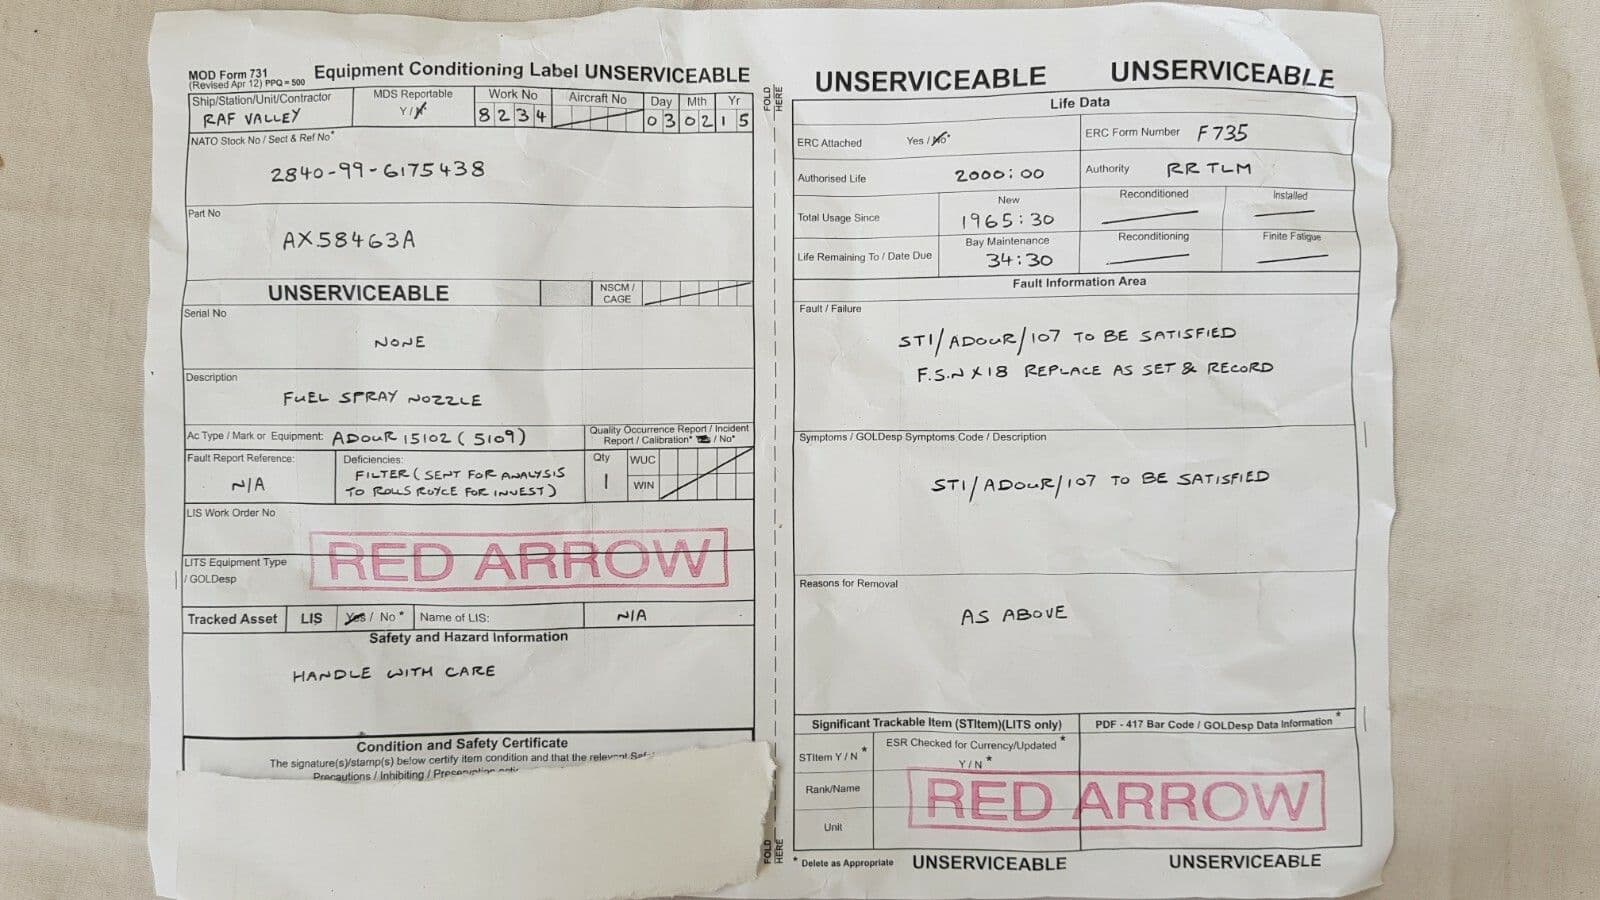 MOD Form 731
(Revised Apr 12) PPQ = 500
Equipment Conditioning Label UNSERVICEABLE
Ship/Station/Unit/Contractor
RAF VALLEY
MDS Reportable
Y/N
Work No
8234
Aircraft No
Day Mth Yr
03 02 15
NATO Stock No / Sect & Ref No*
2840-99-6175438
Part No
AX58463A
UNSERVICEABLE
NSCM /
CAGE
Serial No
NONE
Description
FUEL SPRAY NOZZLE
Ac Type / Mark or Equipment: ADOUR 15102 (5109)
Quality Occurrence Report / Incident
Report / Calibration* Yes / No*
Fault Report Reference:
N/A
Deficiencies:
FILTER (SENT FOR ANALYSIS
TO ROLLS ROYCE FOR INVEST)
Qty
1
WUC
WIN
LIS Work Order No
RED ARROW
LITS Equipment Type
/ GOLDesp
Tracked Asset LIS Yes / No* Name of LIS: N/A
Safety and Hazard Information
HANDLE WITH CARE
Condition and Safety Certificate
The signature(s)/stamp(s) below certify item condition and that the relevant
Precautions / Inhibiting /
FOLD HERE
FOLD HERE
UNSERVICEABLE UNSERVICEABLE
Life Data
ERC Attached Yes / No*
ERC Form Number F735
Authorised Life 2000:00
Authority RR TLM
Total Usage Since
New
1965:30
Reconditioned
Installed
Life Remaining To / Date Due
Bay Maintenance
34:30
Reconditioning
Finite Fatigue
Fault Information Area
Fault / Failure
STI/ADOUR/107 TO BE SATISFIED
F.S.N X 18 REPLACE AS SET & RECORD
Symptoms / GOLDesp Symptoms Code / Description
STI/ADOUR/107 TO BE SATISFIED
Reasons for Removal
AS ABOVE
Significant Trackable Item (STItem)(LITS only)
PDF - 417 Bar Code / GOLDesp Data Information *
STItem Y / N *
ESR Checked for Currency/Updated *
Y / N *
Rank/Name
RED ARROW
Unit
* Delete as Appropriate
UNSERVICEABLE UNSERVICEABLE